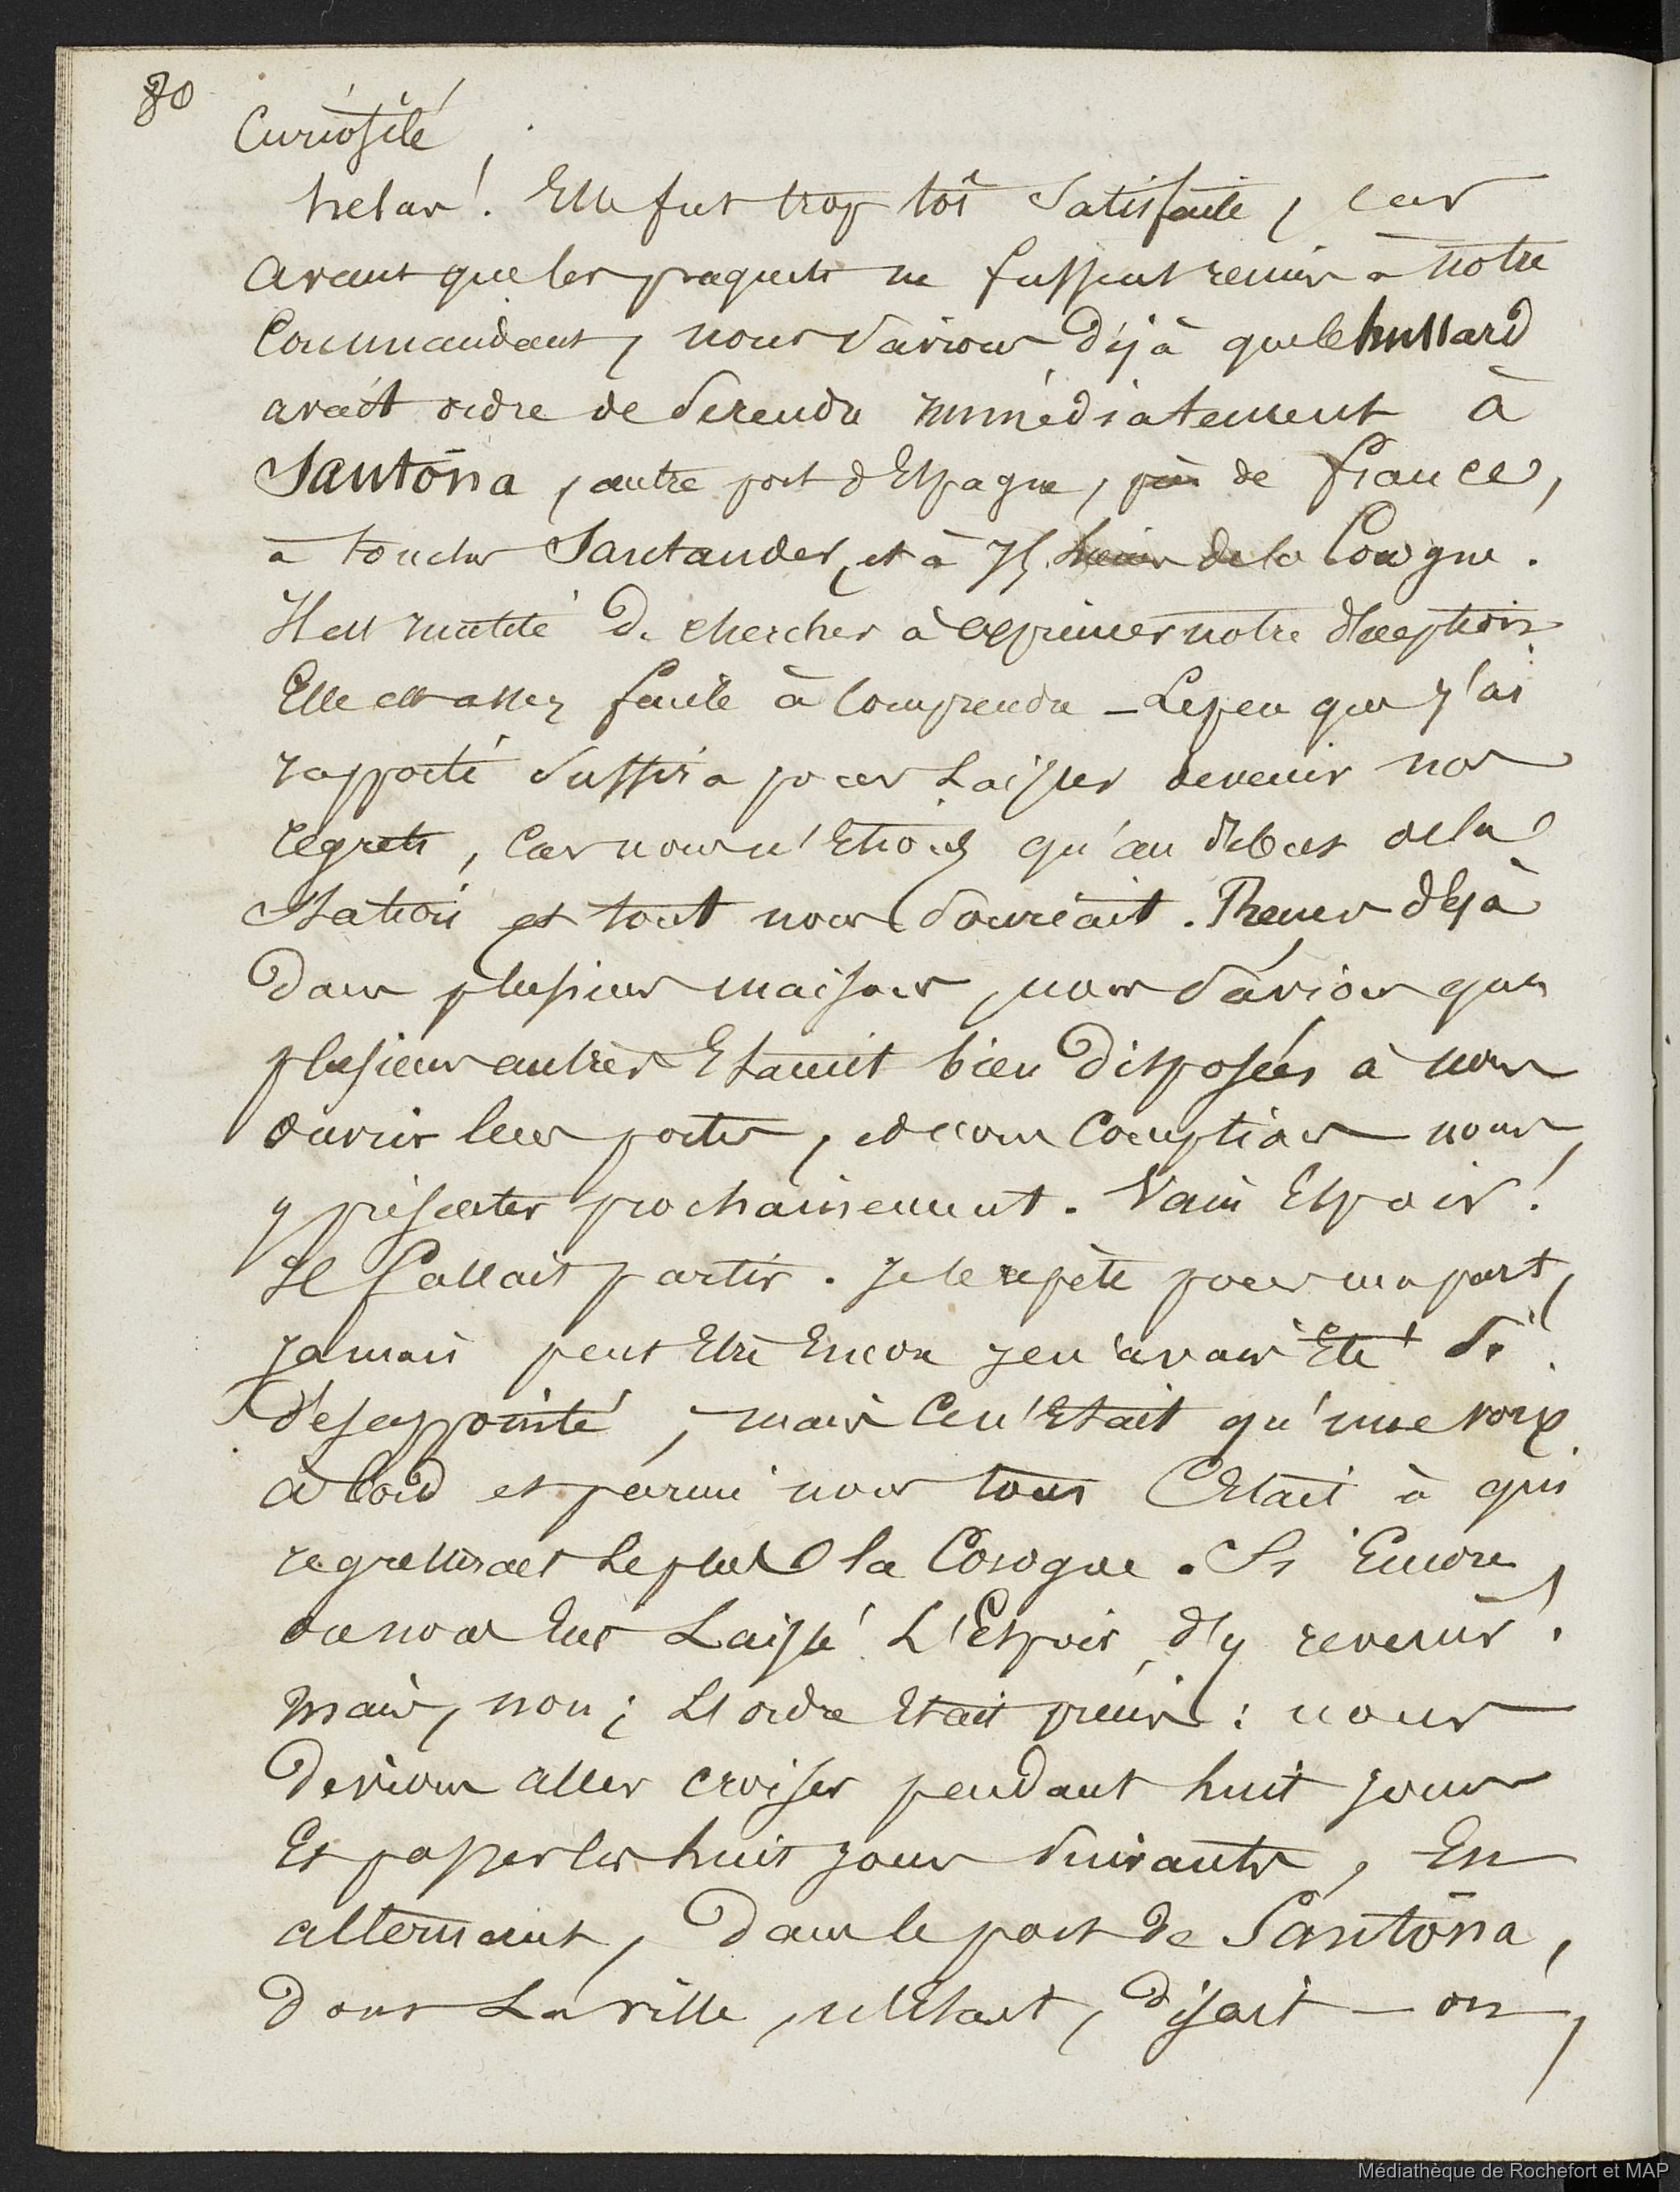 80
Curiosité
helas! Elle fut trop tôt Satisfaite, car
avant que les paquets ne fussent remis à notre
Commandant, nous Savions déjà que le hussard
avait ordre de Se rendre immédiatement à
Santona, autre port d'Espagne, près de france,
à toucher Santander, et à 75 lieues de la Corogne.
Il est inutile de chercher à exprimer notre déception
Elle est assez facile à Comprendre – Le peu que j'ai
rapporté Suffira pour Laisser deviner nos
regrets, Car nous n'Etions qu'au début de la
Station et tout nous Souriait. Reçus déjà
Dans plusieurs maisons, nous Savions que
plusieurs autres Etaient bien Disposées à nous
ouvrir leurs portes, et nous Comptions nous
y présenter prochainement. Vain Espoir!
Il fallait partir. Je le repète pour ma part,
Jamais peut Etre Encore je n'avais Eté Si
désappointé, mais Ce n'Etait qu'une voix
à bord et parmi nous tous C'Etait à qui
regretterait Le plus la Corogne. Si Encore
on nous Eut Laissé L'Espoir d'y revenir!
Mais, non; L'ordre Etait précis: nous
Devions aller croiser pendant huit jours
Et passer les huit jours Suivants, En
alternant, Dans le port de Santona,
Dont La ville, n'Etait, Disait – on,
Médiathèque de Rochefort et MAP